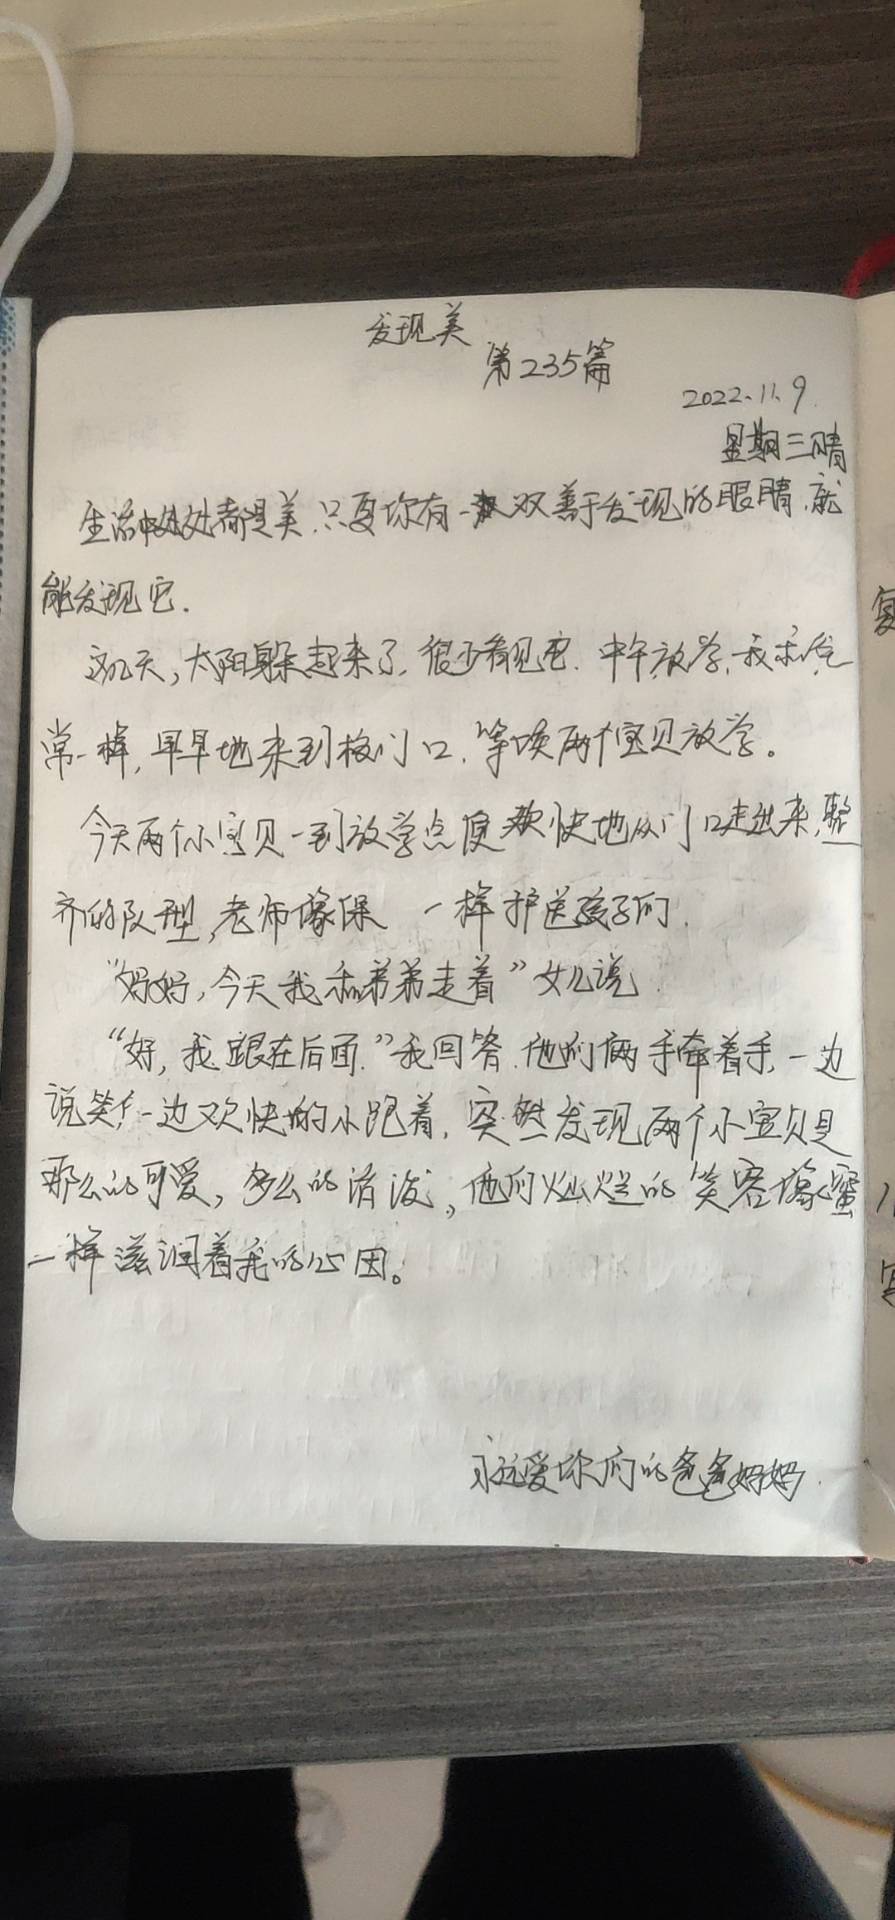 发现美
第235篇
2022.11.9.
星期三晴
生活中处处都是美.只要你有一双善于发现的眼睛.就
能发现它.
这几天,太阳躲起来了.很少看见它.中午放学.我和往
常一样,早早地来到校门口.等候两个宝贝放学。
今天两个小宝贝一到放学点便欢快地从门口走出来,整
齐的队型,老师像保 一样护送孩子们.
“妈妈,今天我和弟弟走着”女儿说
“好,我跟在后面.”我回答.他们俩手牵着手,一边
说笑,一边欢快的小跑着,突然发现两个小宝贝是
那么的可爱,多么的活泼,他们灿烂的笑容像蜜
一样滋润着我的心田。
永远爱你们的爸爸妈妈.